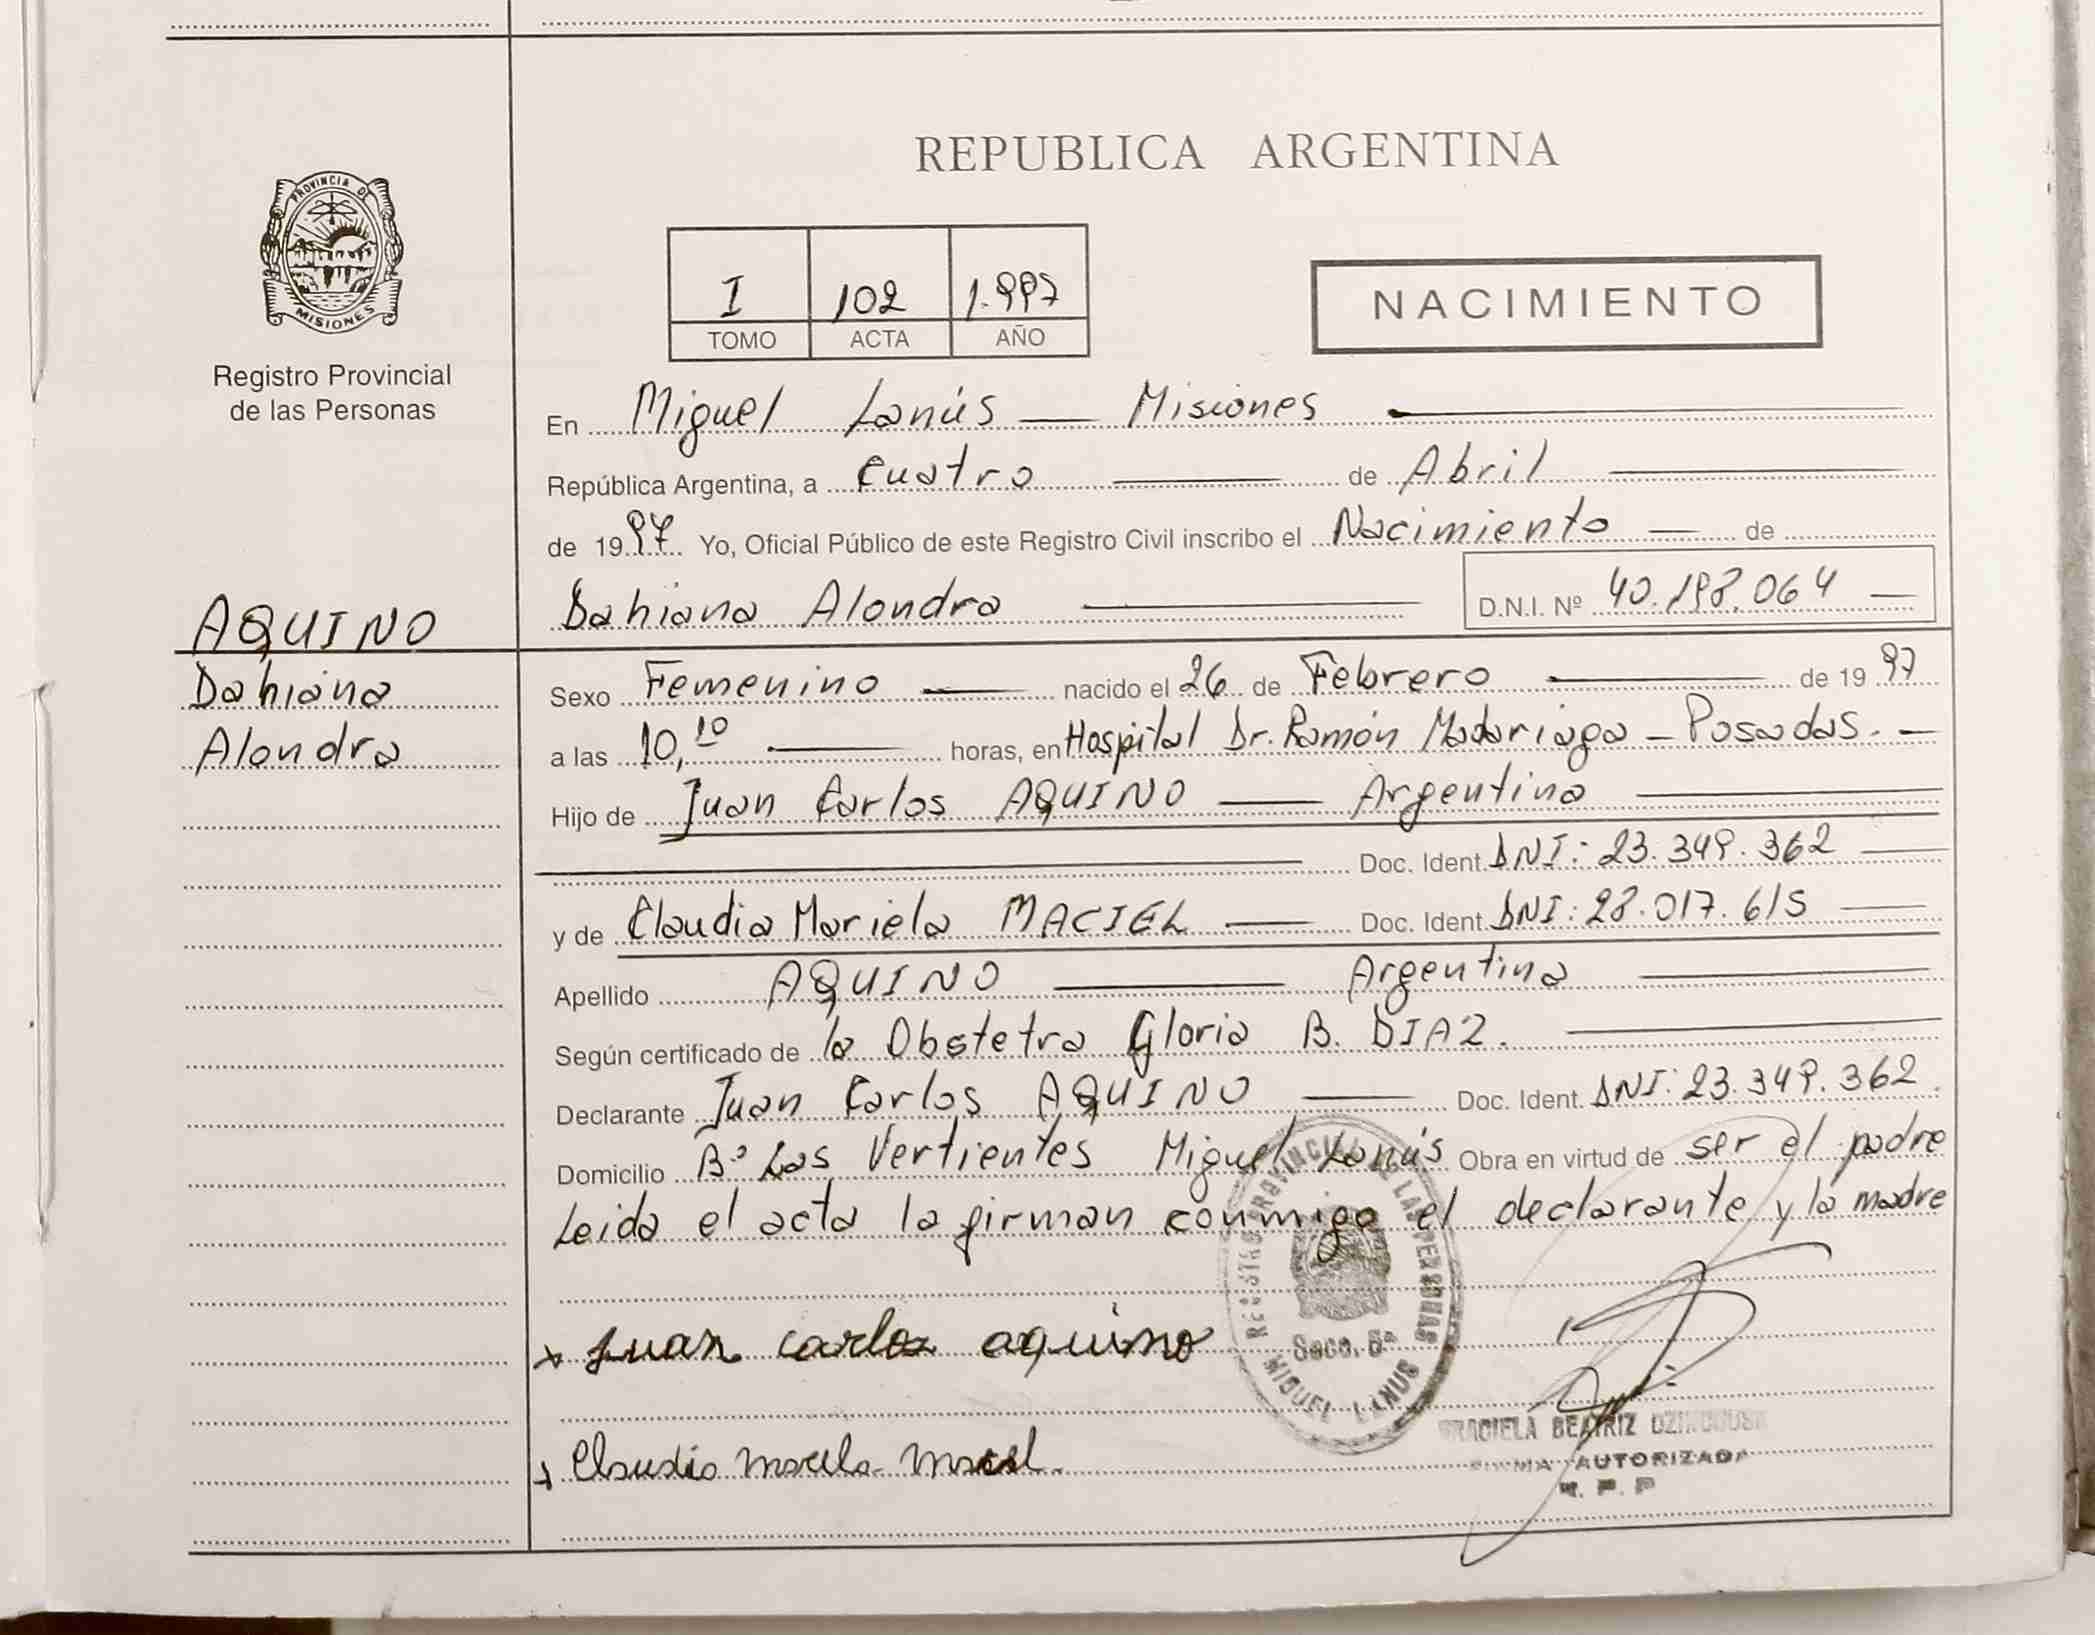 PROVINCIA DE
MISIONES
Registro Provincial
de las Personas
REPUBLICA ARGENTINA
I 102 1.997
TOMO ACTA AÑO
NACIMIENTO
En Miguel Lanús — Misiones
República Argentina, a Cuatro de Abril
de 1997 Yo, Oficial Público de este Registro Civil inscribo el Nacimiento de
Dahiana Alondra D.N.I. Nº 40.198.064
AQUINO
Dahiana
Alondra
Sexo Femenino nacido el 26 de Febrero de 1997
a las 10,10 horas, en Hospital Dr. Ramón Madariaga - Posadas. -
Hijo de Juan Carlos AQUINO — Argentino
Doc. Ident. DNI: 23.349.362
y de Claudia Mariela MACIEL — Doc. Ident. DNI: 28.017.615
Apellido AQUINO — Argentina
Según certificado de la Obstetra Gloria B. DIAZ.
Declarante Juan Carlos AQUINO — Doc. Ident. DNI: 23.349.362.
Domicilio Bº Las Vertientes Miguel Lanús Obra en virtud de ser el padre
Leida el acta la firman conmigo el declarante y la madre
REGISTRO PROVINCIAL DE LAS PERSONAS
Secc. 6ª
MIGUEL LANUS
x Juan carlos aquino
GRACIELA BEATRIZ
FIRMA AUTORIZADA
R. P. P
x Claudia Mariela Maciel